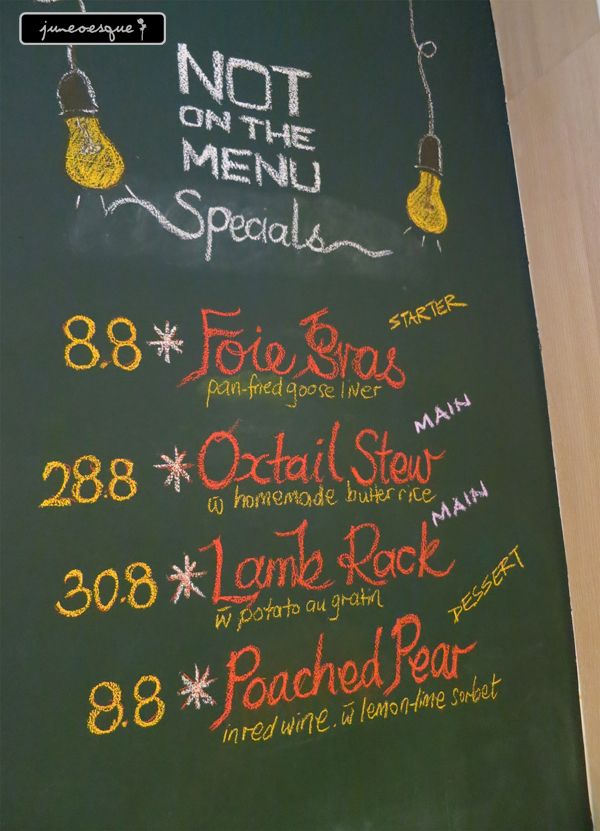 juneoesque
NOT
ON THE
MENU
Specials
STARTER
8.8 * Foie Gras
pan-fried goose liver
MAIN
28.8 * Oxtail Stew
w̄ homemade butter rice
MAIN
30.8 * Lamb Rack
w̄ potato au gratin
DESSERT
8.8 * Poached Pear
in red wine. w̄ lemon-lime sorbet